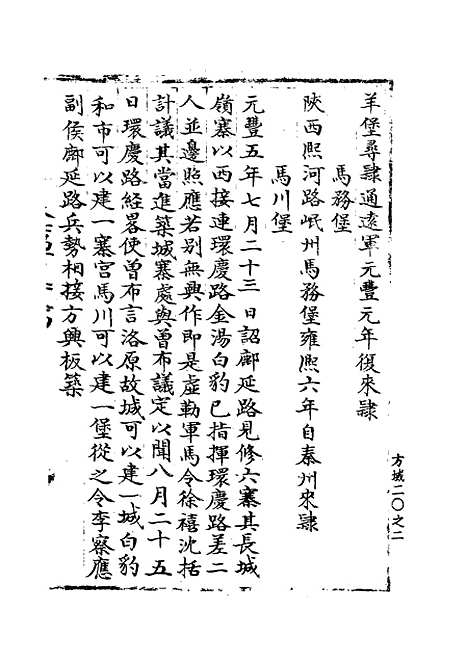 羊堡尋隸通遠軍元豐元年復來隸
馬務堡
陝西熙河路岷州馬務堡雍熙六年自秦州來隸
馬川堡
元豐五年七月二十三日詔鄜延路見修六寨其長城
嶺寨以西接連環慶路金湯白豹已指揮環慶路差二
人並邊照應若別無興作即是虛勤軍馬令徐禧沈括
計議其當進築城寨處與曾布議定以聞八月二十五
日環慶路經畧使曾布言洛原故城可以建一城白豹
和市可以建一寨宮馬川可以建一堡從之令李察應
副侯鄜延路兵勢相接方興板築
方域二〇之二